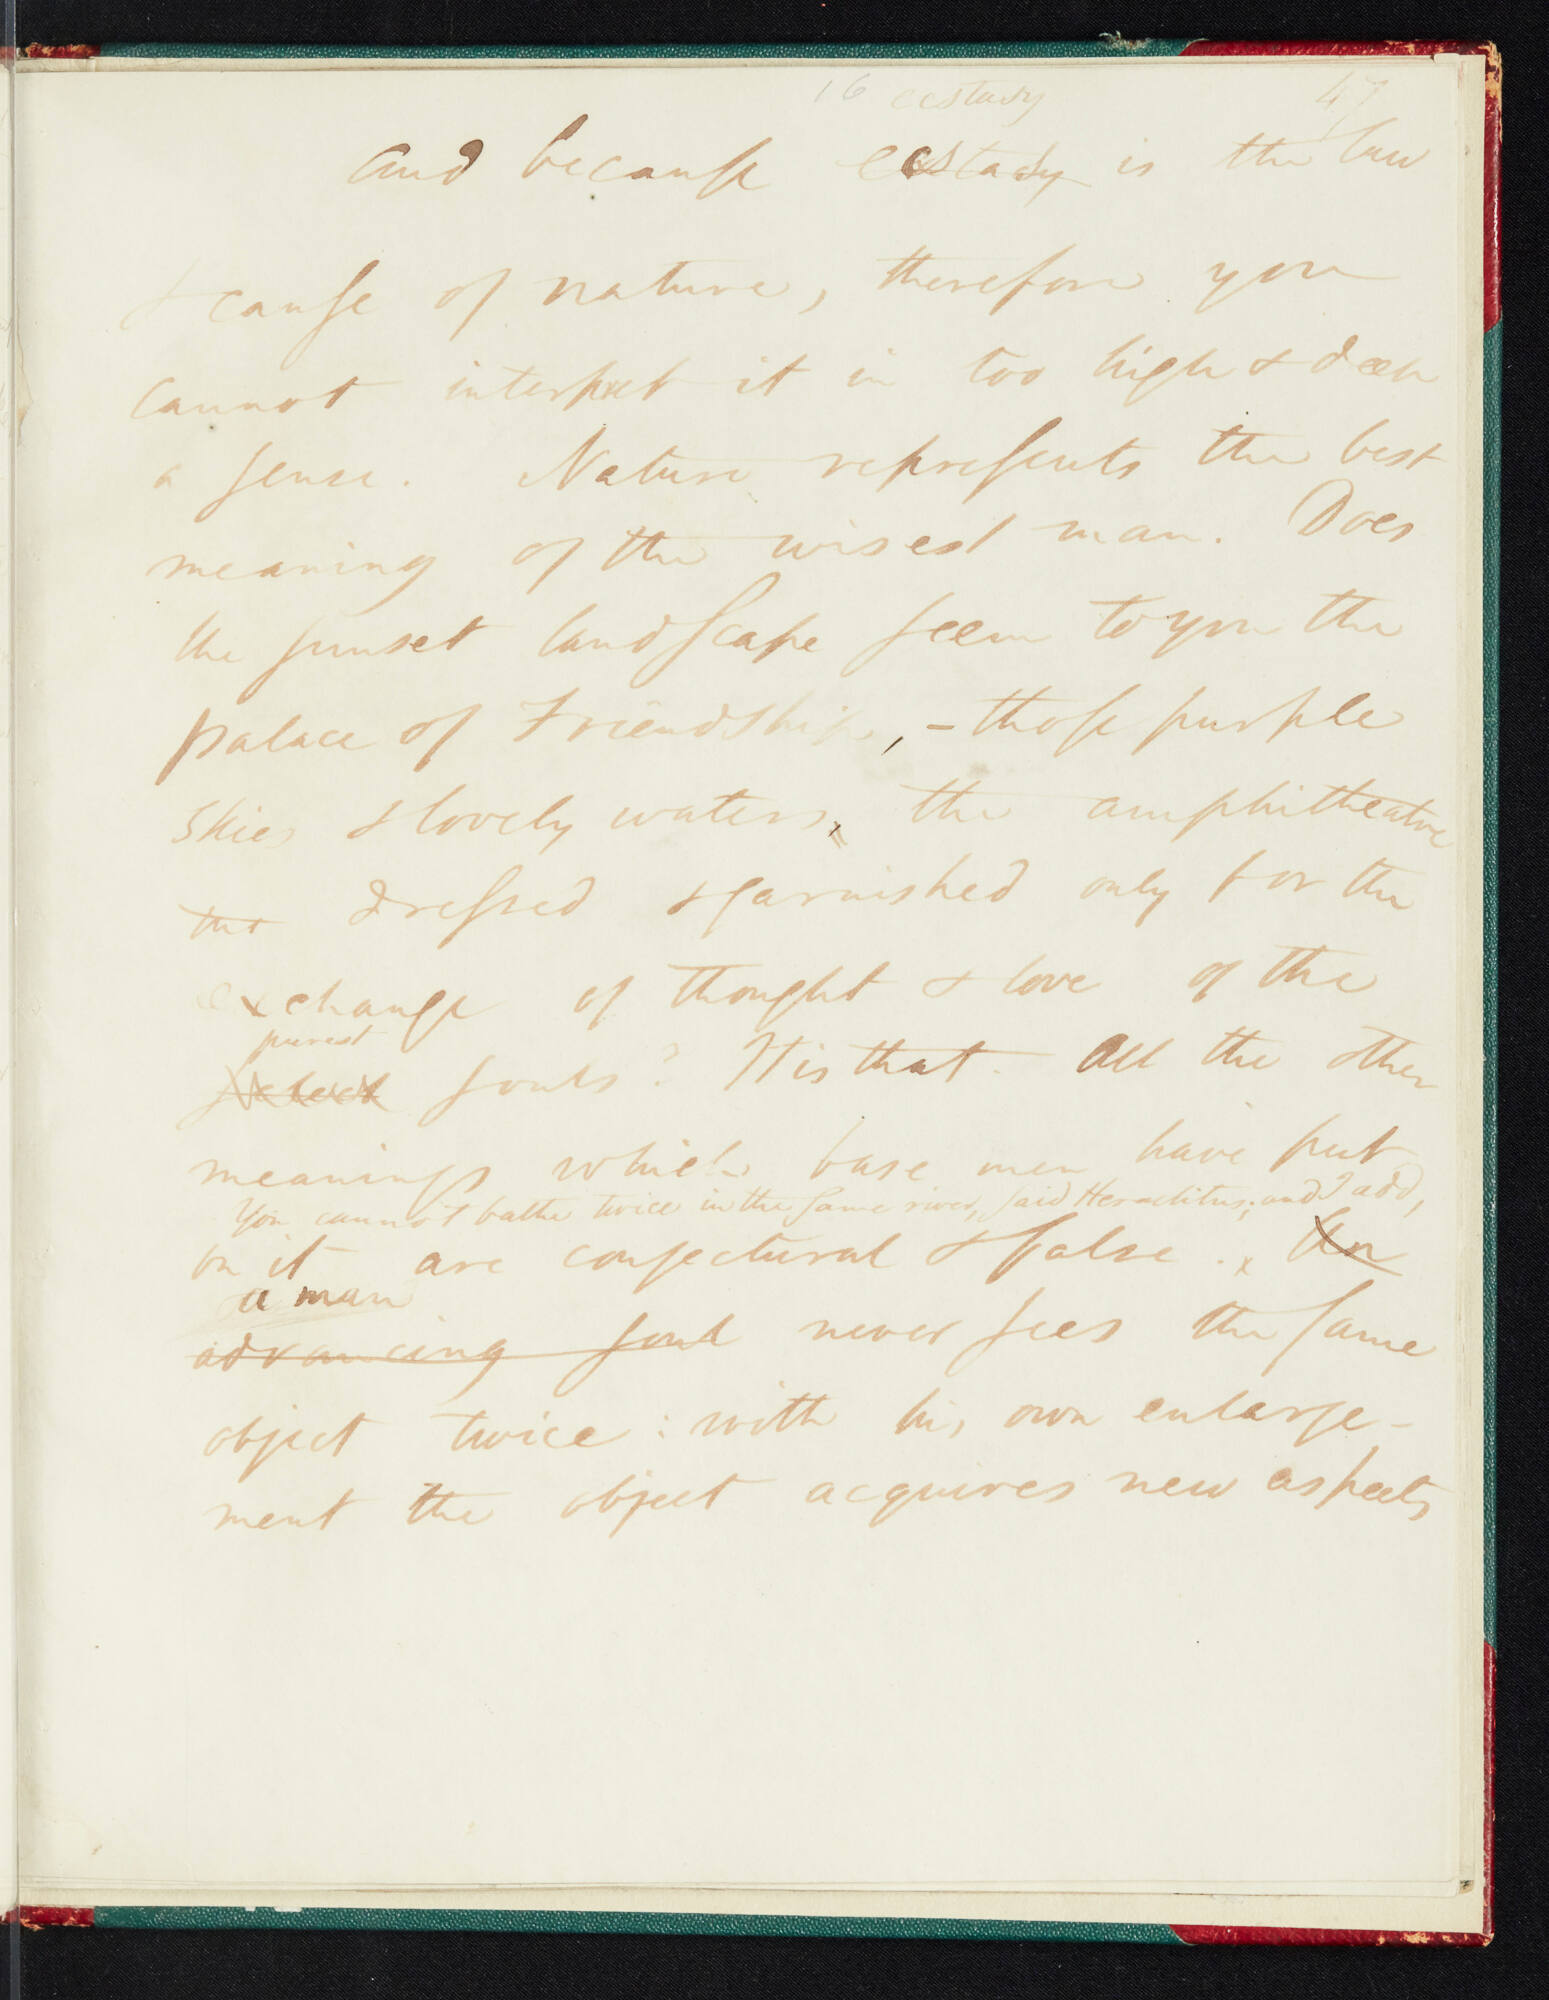 16 ecstasy 47
And because ecstasy is the law
& cause of nature, therefore you
cannot interpret it in too high & deep
a sense. Nature represents the best
meaning of the wisest man. Does
the sunset landscape seem to you the
palace of Friendship, – those purple
skies & lovely waters, the amphitheatre
the dressed & garnished only for the
exchange of thought & love of the
purest
select souls? It is that. All the other
meanings which base men have put
You cannot bathe twice in the same river, said Heraclitus; and I add,
on it are conjectural & false. x An
a man
advancing soul never sees the same
object twice: with his own enlarge-
ment the object acquires new aspects